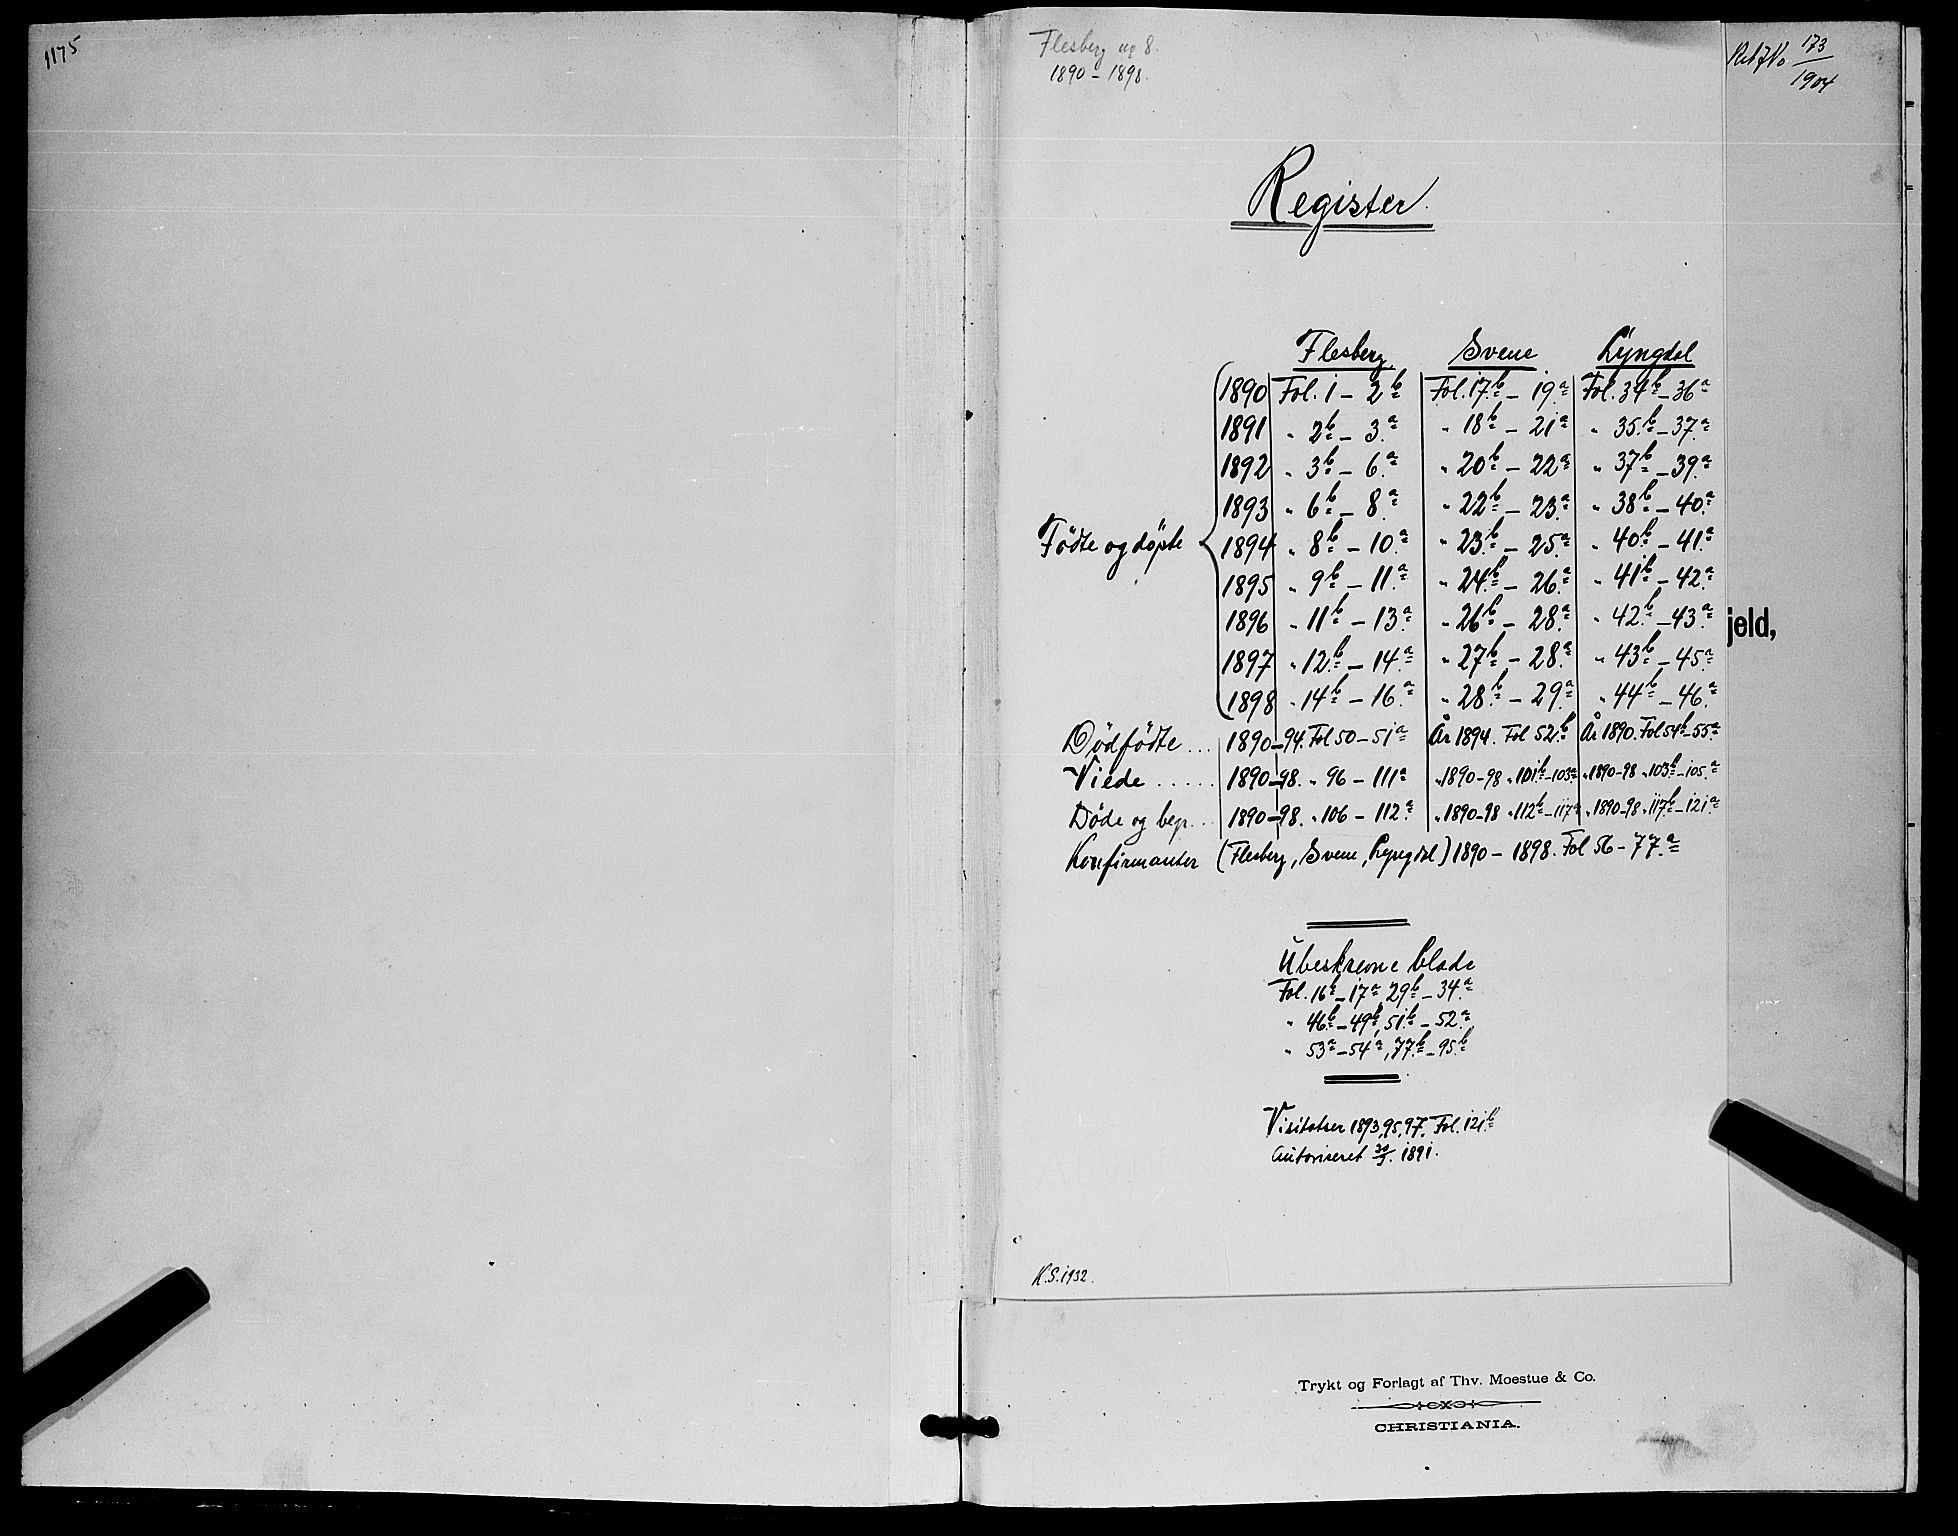 1175
Flesberg no 8.
1890 – 1898.
173
1904
Register.
Flesberg Svene Lyngdal
Fødte og døpte
1890 Fol. 1 – 2b Fol. 17b – 19a Fol. 34b – 36a
1891 " 2b – 3a " 18b – 21a " 35b – 37a
1892 " 3b – 6a " 20b – 22a " 37b – 39a
1893 " 6b – 8a " 22b – 23a " 38b – 40a
1894 " 8b – 10a " 23b – 25a " 40b – 41a
1895 " 9b – 11a " 24b – 26a " 41b – 42a
1896 " 11b – 13a " 26b – 28a " 42b – 43a
1897 " 12b – 14a " 27b – 28a " 43b – 45a
1898 " 14b – 16a " 28b – 29a " 44b – 46a
jeld,
Dødfødte... 1890–94. Fol 50 – 51a År 1894. Fol 52b År 1890. Fol 54b–55a
Viede ..... 1890–98. " 96 – 111a " 1890–98 " 101b–103a " 1890–98 " 103b–105a
Døde og begr... 1890–98. " 106 – 112a " 1890–98 " 112b–117a " 1890–98 " 117b–121a
Konfirmanter (Flesberg, Svene, Lyngdal) 1890 – 1898. Fol 56 – 77a
Ubeskrevne blade
Fol. 16b – 17a, 29b – 34a
" 46b – 49b, 51b – 52a
" 53a – 54a, 77b – 95b
Visitatser 1893, 95, 97. Fol. 121b
Autoriseret 30/3. 1891.
K.S. 1932.
Trykt og Forlagt af Thv. Moestue & Co.
CHRISTIANIA.